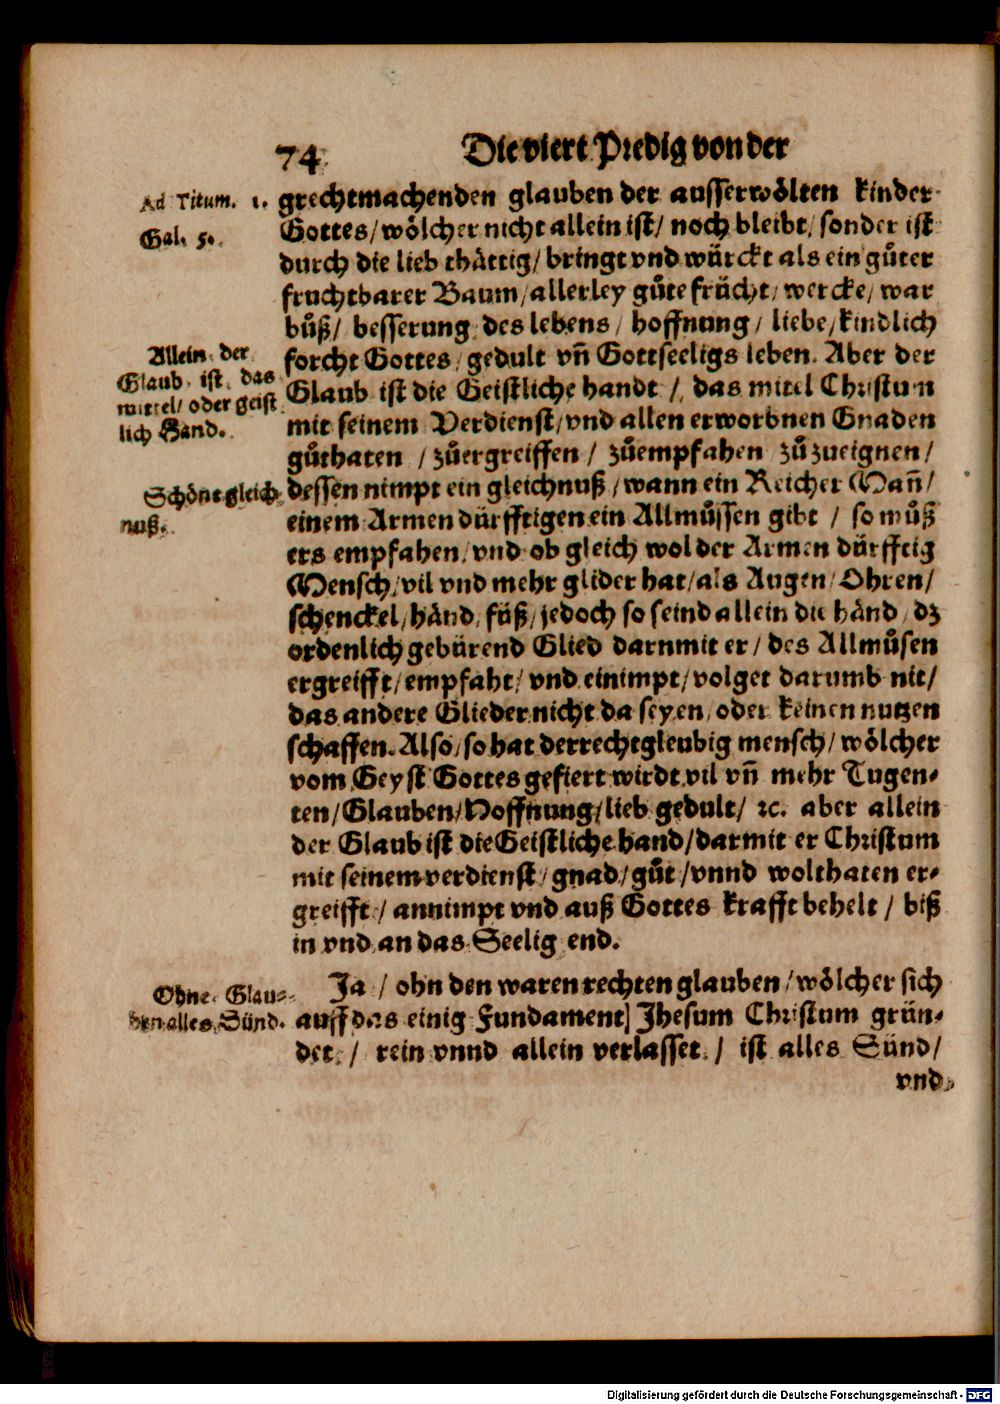 74 Die viert Predig von der
Ad Titum. 1.
Gal. 5.
grechtmachenden glauben der ausserwölten kinder
Gottes/ wölcher nicht allein ist/ noch bleibt/ sonder ist
durch die lieb thättig/ bringt vnd würckt als ein gůter
fruchtbarer Baum/ allerley gůte frücht/ wercke/ war
bůß/ besserung des lebens/ hoffnung/ liebe/ kindlich
forcht Gottes/ gedult vñ Gottseeligs leben. Aber der
Allein der
Glaub ist das
mittel/ oder geist
lich Hand.
Glaub ist die Geistliche handt/ das mitel Christum
mit seinem Verdienst/ vnd allen erworbnen Gnaden
gůthaten / zůergreiffen / zůempfahen zů zueignen/
Schöne gleich
nuß.
dessen nimpt ein gleichnuß/ wann ein Reicher Mañ/
einem Armen dürfftigen ein Allmůssen gibt / so můß
ers empfahen/ vnd ob gleich wol der Armen dürfftig
Mensch/ vil vnd mehr glider hat/ als Augen/ Ohren/
schenckel/ händ/ füß/ jedoch so seind allein die händ/ dz
ordenlich gebürend Glied darnmit er/ des Allmůsen
ergreifft/ empfaht/ vnd einimpt/ volget darumb nit/
das andere Glieder nicht da seyen/ oder keinen nutzen
schaffen. Also/ so hat der rechtgleubig mensch/ wölcher
vom Geyst Gottes gefiert wirdt vil vñ mehr Tugen-
ten/ Glauben/ Hoffnung/ lieb gedult/ ꝛc. aber allein
der Glaub ist die Geistliche hand/ darmit er Christum
mit seinem verdienst/ gnad/ gůt/ vnnd wolthaten er-
greifft/ annimpt vnd auß Gottes krafft behelt / biß
in vnd an das Seelig end.
Ohne Glau-
ben alles Sünd.
Ja / ohn den waren rechten glauben/ wölcher sich
auff das einig Fundament] Jhesum Christum grün-
det / rein vnnd allein verlasset / ist alles Sünd/
vnd
Digitalisierung gefördert durch die Deutsche Forschungsgemeinschaft - DFG